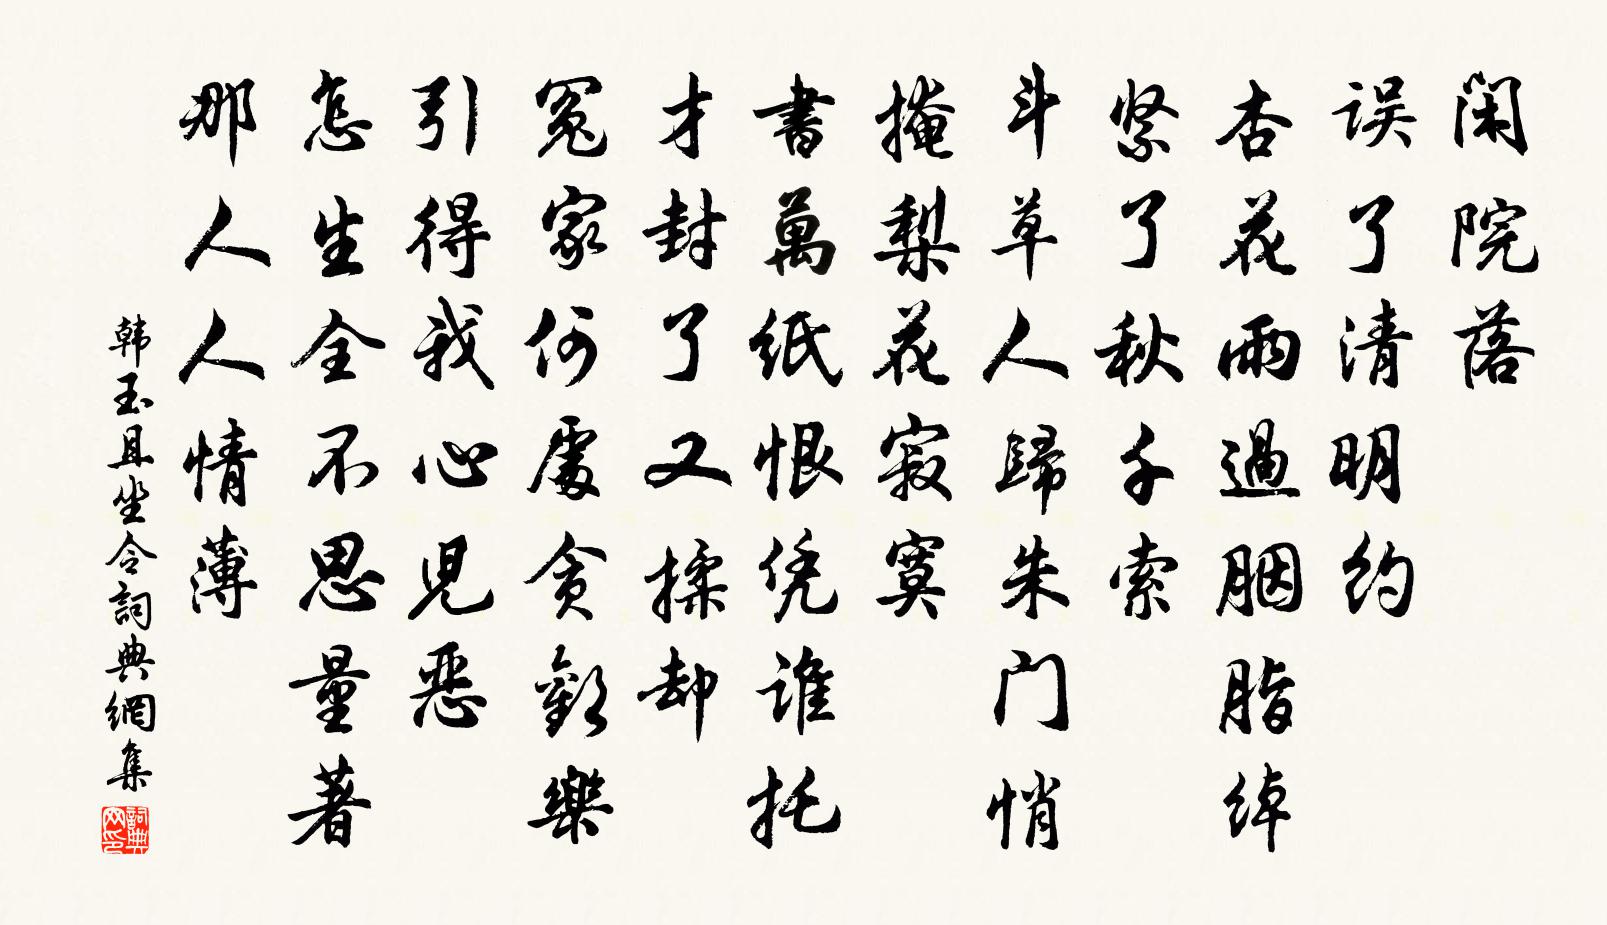 闲院落
误了清明约
杏花雨過胭脂绰
紧了秋千索
斗草人歸朱门悄
掩梨花寂寞
書萬纸恨凭谁托
才封了又揉却
冤家何處贪歡樂
引得我心児恶
怎生全不思量著
那人人情薄
韩玉且坐令詞典網集
詞典网印